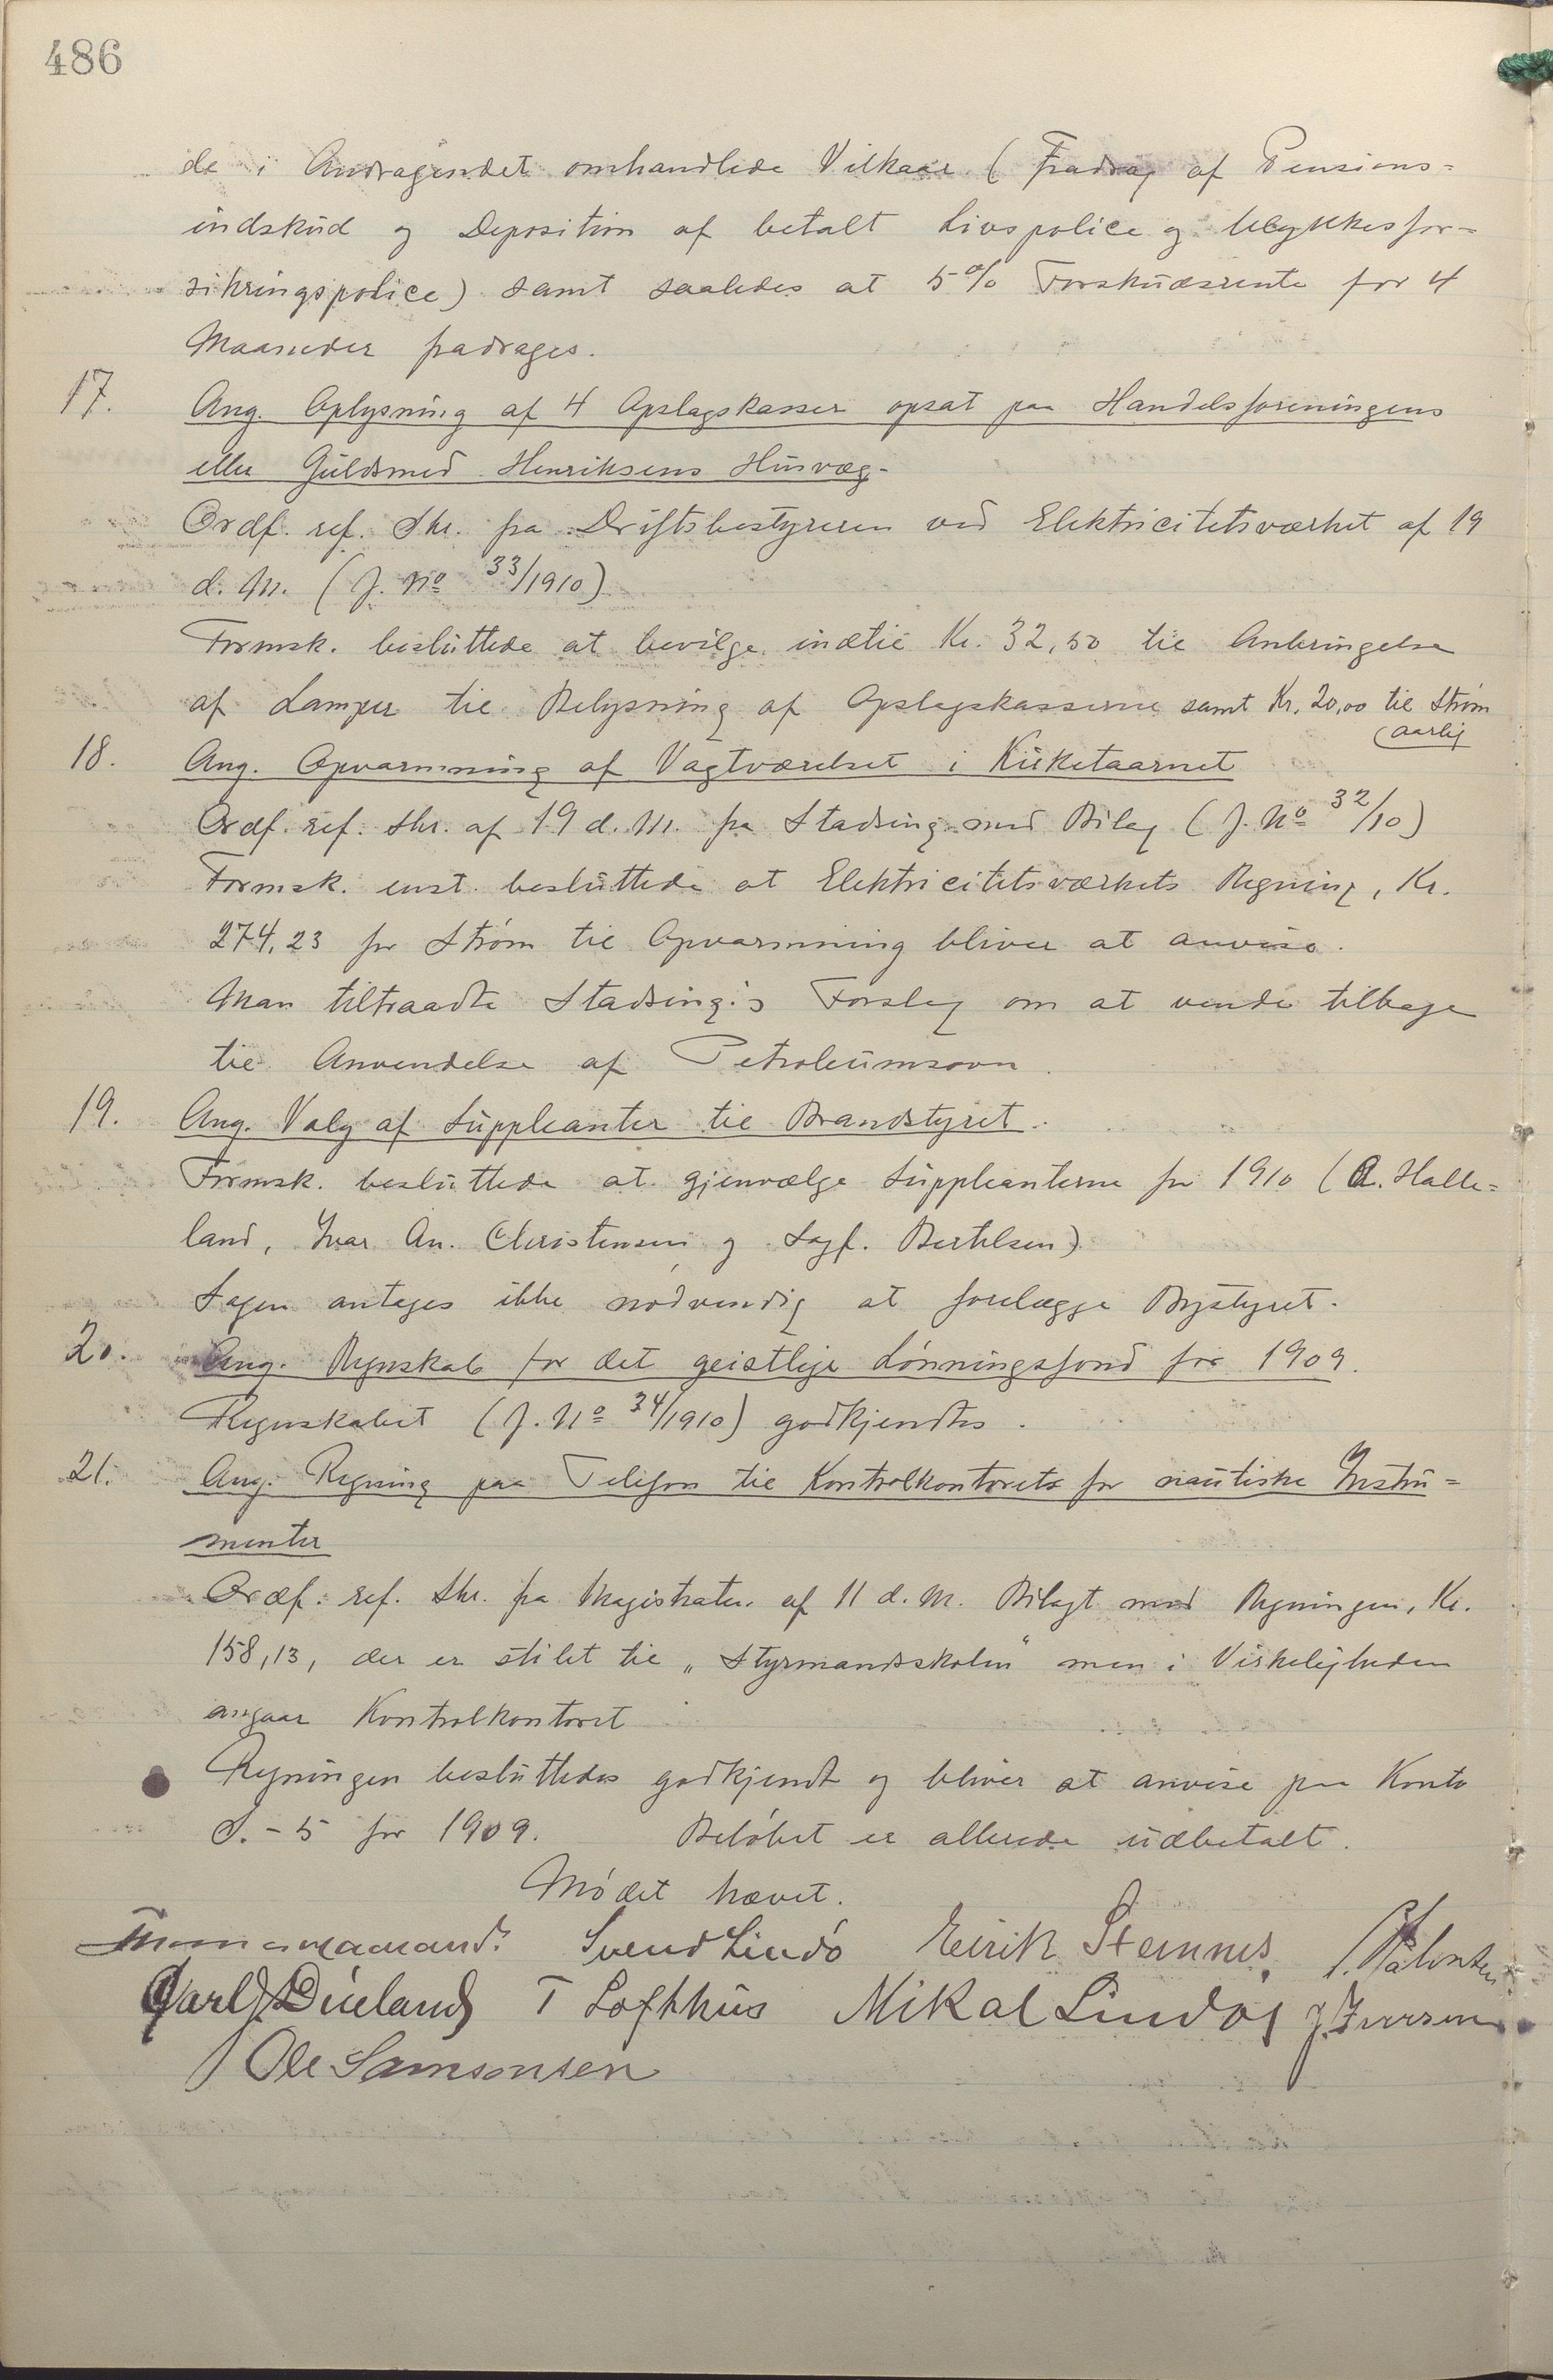 486
de i Andragendet omhandlede Vilkaar (Fradrag af Pensions=
indskud og Deposition af betalt Livspolice og Ulykkesfor=
sikringspolice) samt saaledes at 5% Forskudsrente for 4
Maaneder fradrages.
17. Ang. Oplysning af 4 Opslagskasser opsat paa Handelsforeningens
eller Guldsmed Henriksens Husvæg.
Ordf. ref. Skr. fra Driftsbestyreren ved Elektricitetsværket af 19
d. M. (J. No 33/1910)
Formsk. besluttede at bevilge indtil Kr. 32,50 til Anbringelse
af Lamper til Belysning af Opslagskasserne samt Kr. 20,00 til Strøm
(aarlig
18. Ang. Opvarmning af Vagtværelset i Kirketaarnet
Ordf. ref. skr. af 19 d. M. fra Stadsing. med Bilag (J. No 32/10)
Formsk. enst. besluttede at Elektricitetsværkets Regning, Kr.
274,23 for Strøm til Opvarmning bliver at anvise.
Man tiltraadte Stadsing.'s Forslag om at vende tilbage
til Anvendelse af Petroleumsovn.
19. Ang. Valg af Suppleanter til Brandstyret.
Formsk. besluttede at gjenvælge Suppleanterne for 1910 (A. Halle=
land, Ivar An. Christensen og Sagf. Bertelsen)
Sagen antages ikke nødvendig at forelægge Bystyret.
20. Ang. Regnskab for det geistlige Lønningsfond for 1909.
Regnskabet (J. No 34/1910) godkjendtes.
21. Ang. Regning paa Telefon til Kontrolkontorets for nautiske Instru=
menter
Ordf. ref. Skr. fra Magistraten af 11 d. M. Bilagt med Regningen, Kr.
158,13, der er stilet til „Styrmandsskolen“ men i Virkeligheden
angaar Kontrolkontoret
Regningen besluttedes godkjendt og bliver at anvise paa Konto
S. - 5 for 1909. Beløbet er allerede udbetalt.
Mødet hævet.
Svend Lindø Eirik Steinnes
Carl J. Dueland T Lofthus Mikal Lindøy J. Iversen
Ole Samsonsen